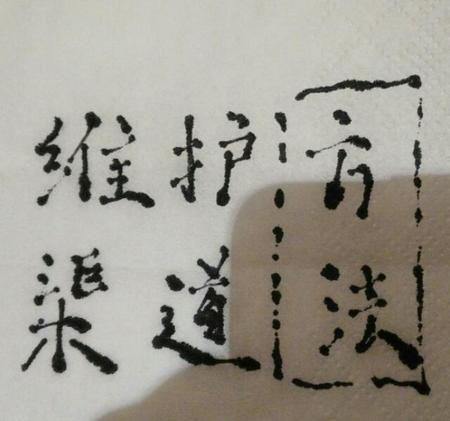 维护
渠道
方法